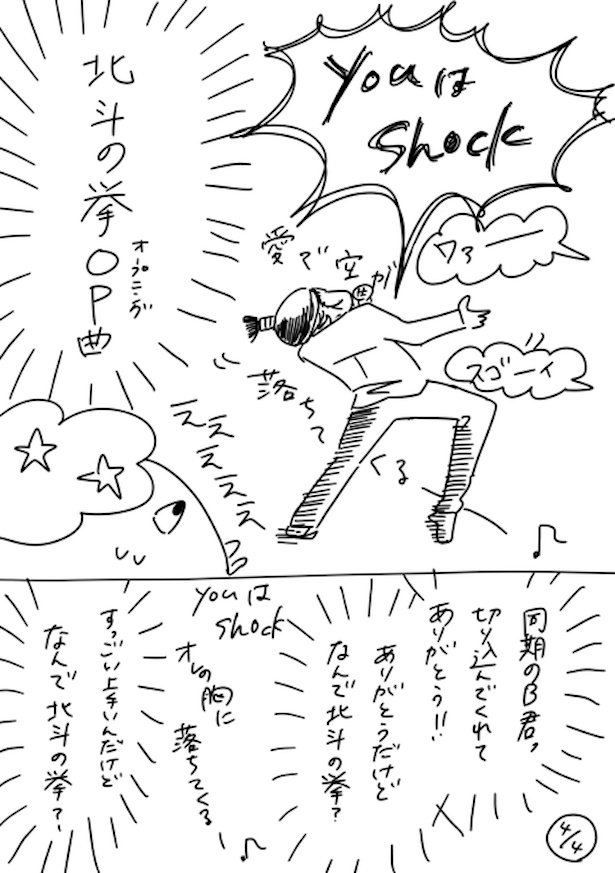 youは
shock
北斗の挙OP曲
オープニング
愛で空が
落ちて
くる
ワァーーー
スゴーイ
ええええええ
同期のB君、
切り込んでくれて
ありがとう!!
ありがとうだけど
なんで北斗の挙?
youは
shock
オレの胸に
落ちてくる
すっごい上手いんだけど
なんで北斗の挙?
4/4